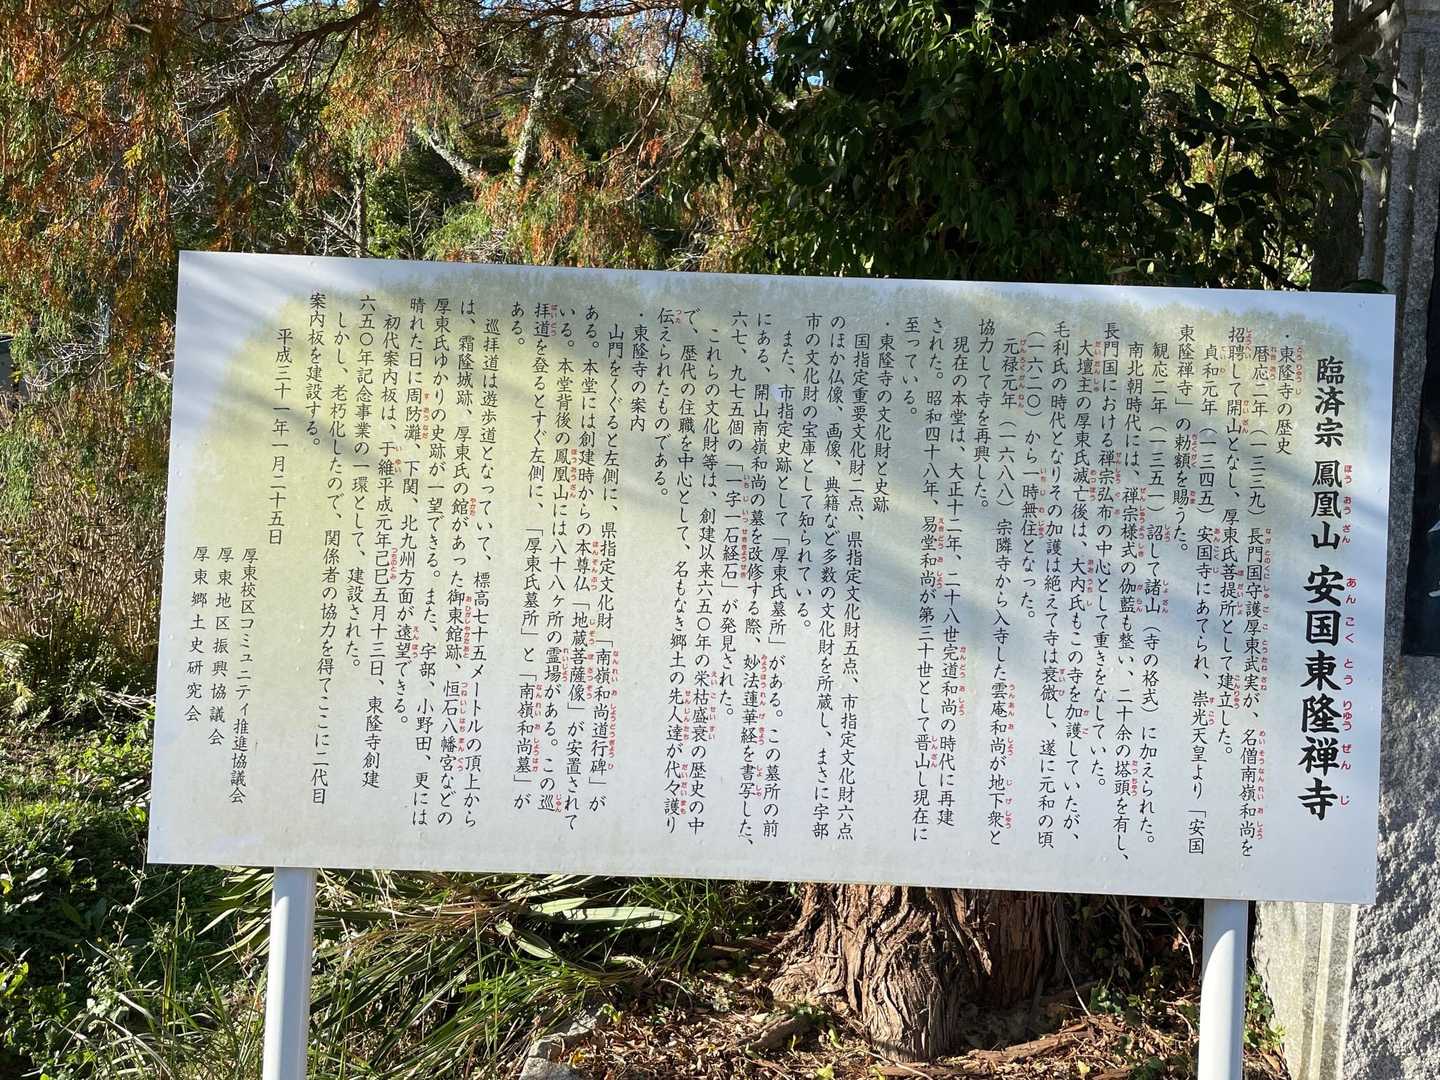 臨済宗 鳳凰山 安国東隆禅寺
・東隆寺の歴史
暦応二年（一三三九）長門国守護厚東武実が、名僧南嶺和尚を
招聘して開山となし、厚東氏菩提所として建立した。
貞和元年（一三四五）安国寺にあてられ、崇光天皇より「安国
東隆禅寺」の勅額を賜うた。
観応二年（一三五一）詔して諸山（寺の格式）に加えられた。
南北朝時代には、禅宗様式の伽藍も整い、二十余の塔頭を有し、
長門国における禅宗弘布の中心として重きをなしていた。
大壇主の厚東氏滅亡後は、大内氏もこの寺を加護していたが、
毛利氏の時代となりその加護は絶えて寺は衰微し、遂に元和の頃
（一六二〇）から一時無住となった。
元禄元年（一六八八）宗隣寺から入寺した雲庵和尚が地下衆と
協力して寺を再興した。
現在の本堂は、大正十二年、二十八世完道和尚の時代に再建
された。昭和四十八年、易堂和尚が第三十世として晋山し現在に
至っている。
・東隆寺の文化財と史跡
国指定重要文化財二点、県指定文化財五点、市指定文化財六点
のほか仏像、画像、典籍など多数の文化財を所蔵し、まさに宇部
市の文化財の宝庫として知られている。
また、市指定史跡として「厚東氏墓所」がある。この墓所の前
にある、開山南嶺和尚の墓を改修する際、妙法蓮華経を書写した、
六七、九七五個の「一字一石経石」が発見された。
これらの文化財等は、創建以来六五〇年の栄枯盛衰の歴史の中
で、歴代の住職を中心として、名もなき郷土の先人達が代々護り
伝えられたものである。
・東隆寺の案内
山門をくぐると左側に、県指定文化財「南嶺和尚道行碑」が
ある。本堂には創建時からの本尊仏「地蔵菩薩像」が安置されて
いる。本堂背後の鳳凰山には八十八ヶ所の霊場がある。この巡
拝道を登るとすぐ左側に、「厚東氏墓所」と「南嶺和尚墓」が
ある。
巡拝道は遊歩道となっていて、標高七十五メートルの頂上から
は、霜降城跡、厚東氏の館があった御東館跡、恒石八幡宮などの
厚東氏ゆかりの史跡が一望できる。また、宇部、小野田、更には
晴れた日に周防灘、下関、北九州方面が遠望できる。
初代案内板は、于維平成元年己巳五月十三日、東隆寺創建
六五〇年記念事業の一環として、建設された。
しかし、老朽化したので、関係者の協力を得てここに二代目
案内板を建設する。
平成三十一年一月二十五日
厚東校区コミュニティ推進協議会
厚東地区振興協議会
厚東郷土史研究会